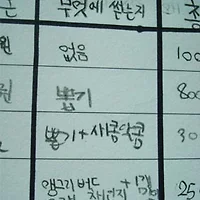 무엇에 썼는지
원 없음 100
원 뽑기 800
뽑기+새콤달콤 30
앵그리버드 + 25